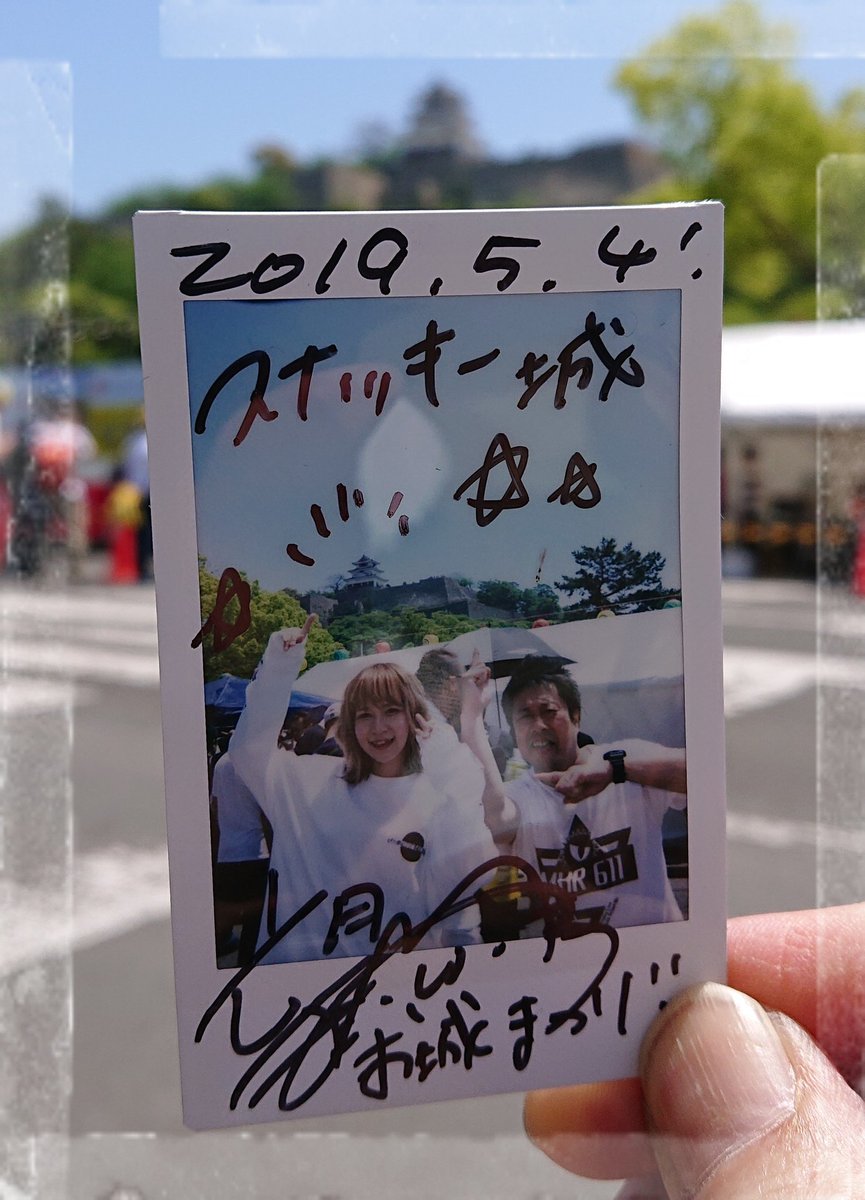 2019.5.4!
スナッキー城
MHR 611
お城まつり!!